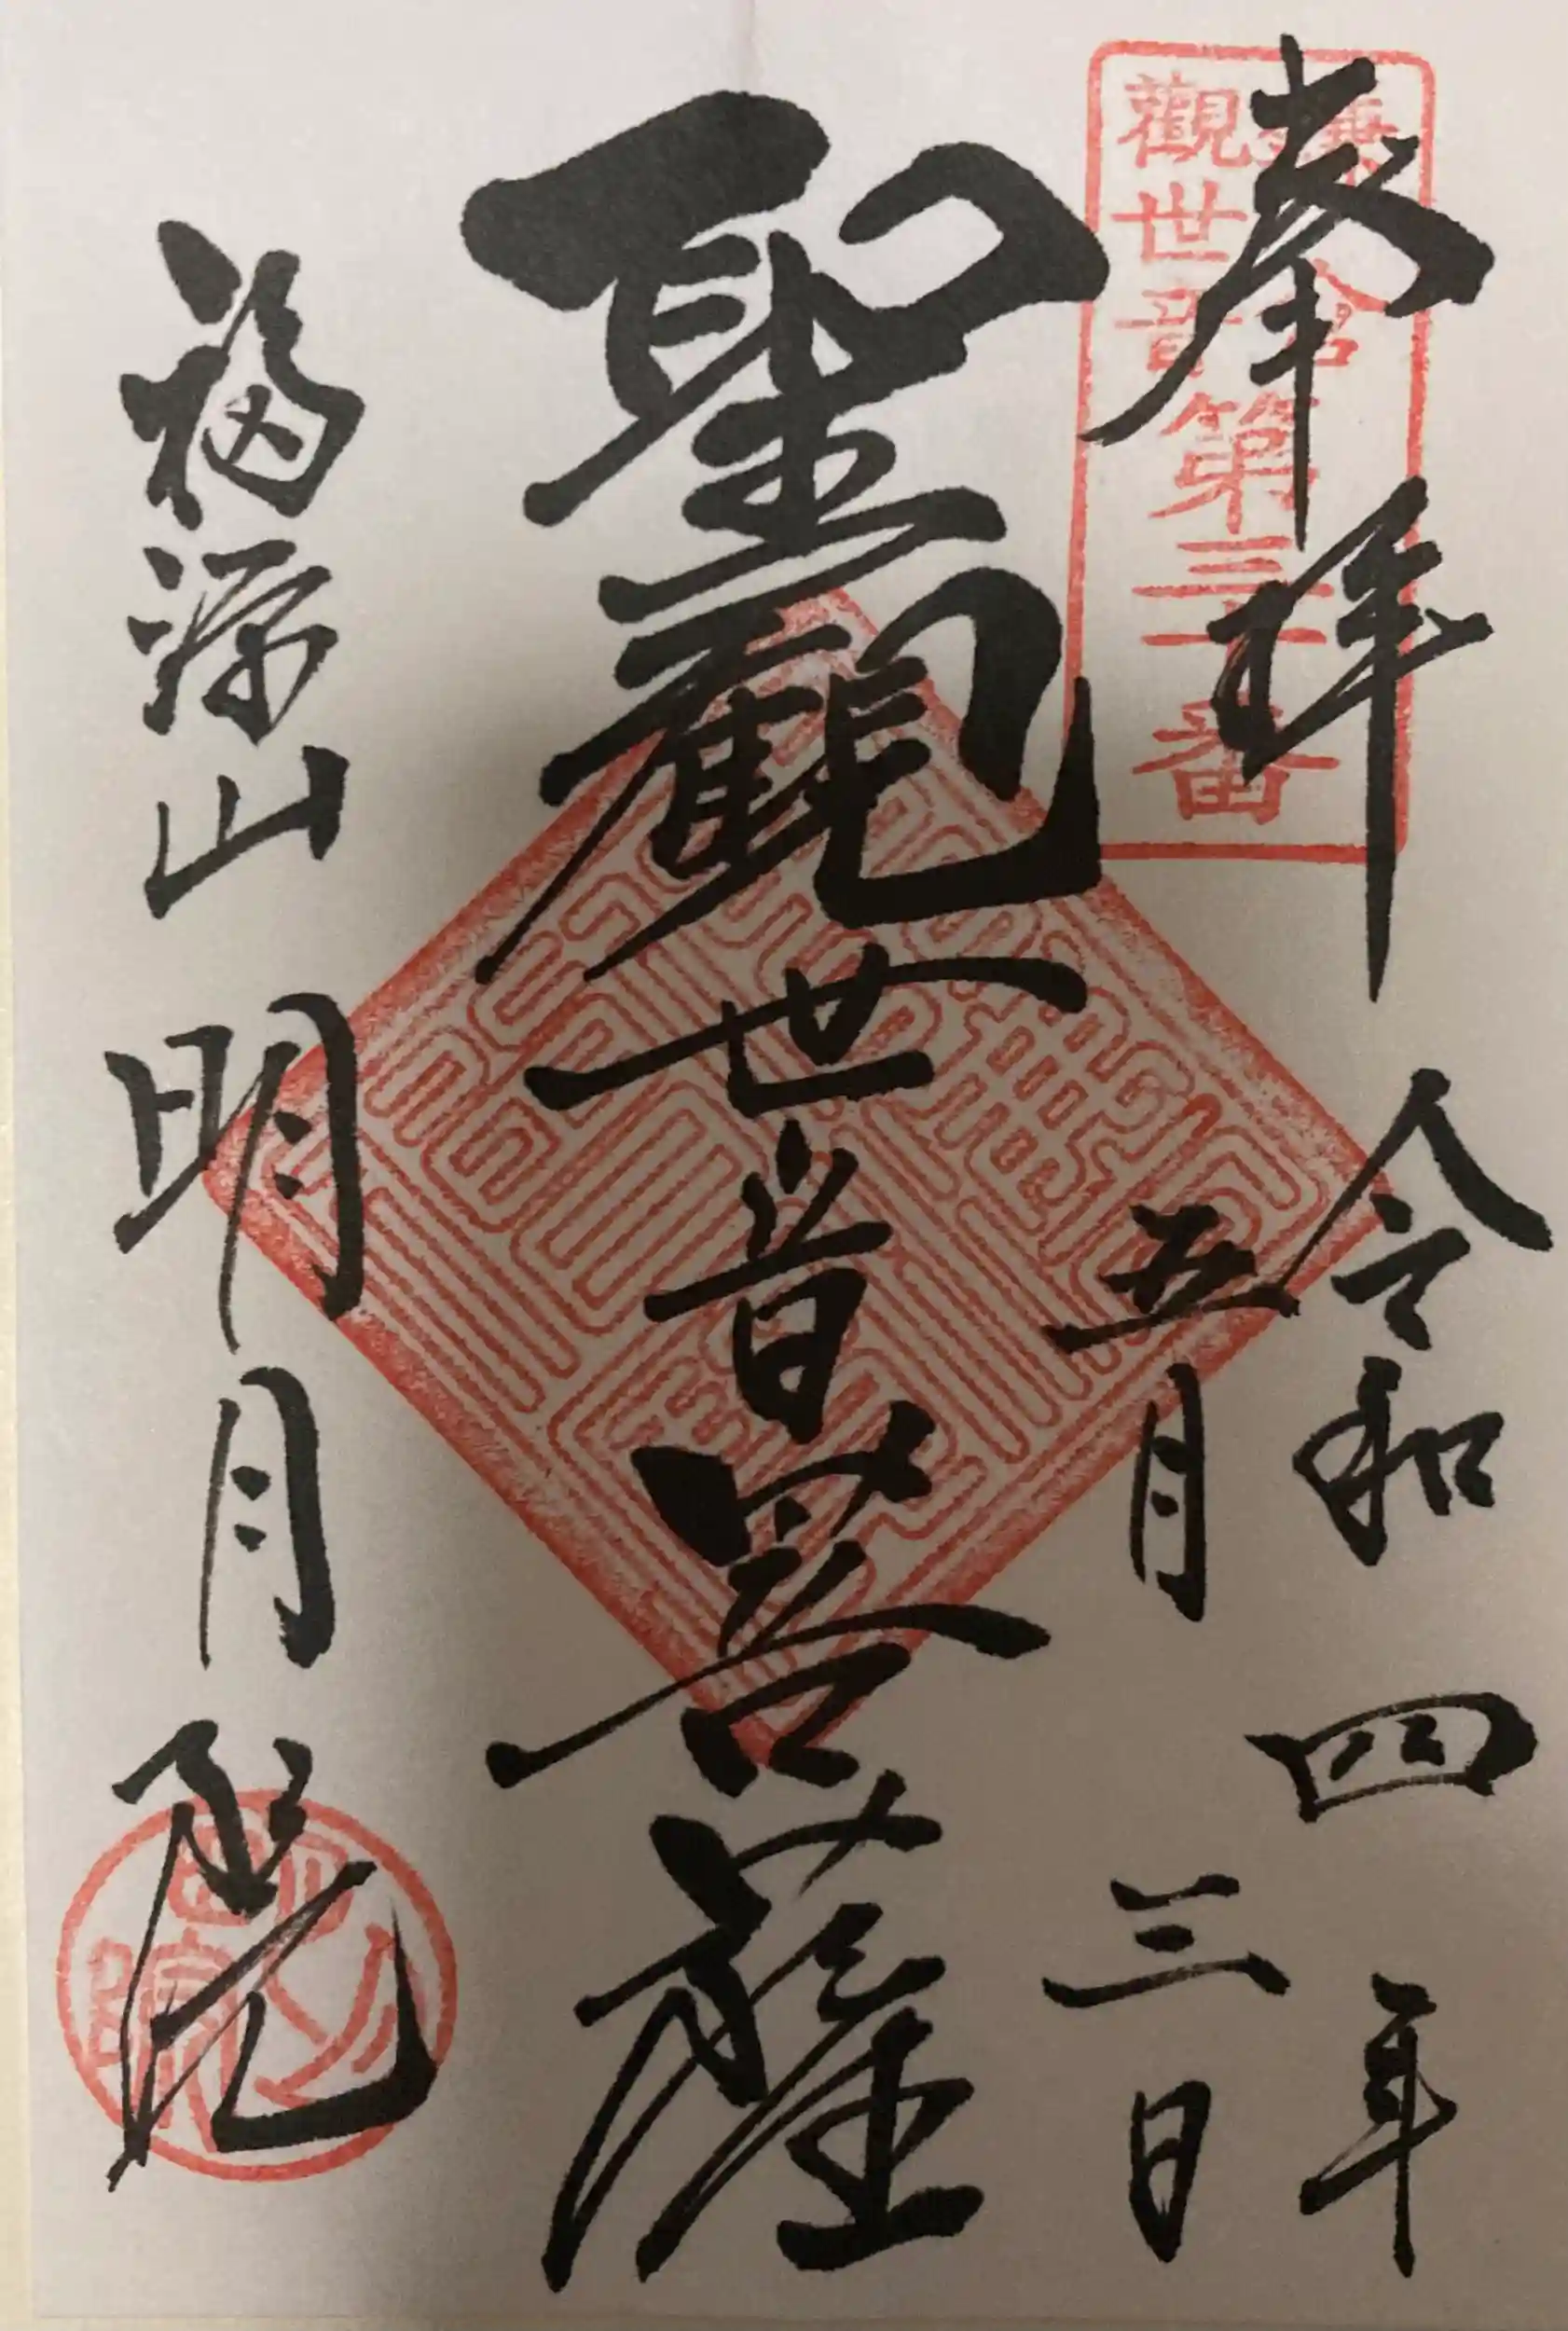 奉拝
鎌倉
觀世音
第三十番
令和四年
五月三日
聖觀世音菩薩
福源山明月院